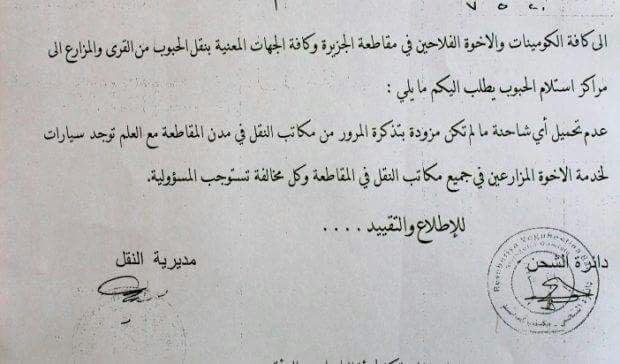 الى كافة الكومينات والاخوة الفلاحين في مقاطعة الجزيرة وكافة الجهات المعنية بنقل الحبوب من القرى والمزارع الى
مراكز استلام الحبوب يطلب اليكم ما يلي :
عدم تحميل أي شاحنة ما لم تكن مزودة بتذكرة المرور من مكاتب النقل في مدن المقاطعة مع العلم توجد سيارات
لخدمة الاخوة المزارعين في جميع مكاتب النقل في المقاطعة وكل مخالفة تستوجب المسؤولية.
للإطلاع والتقييد ....
دائرة الشحن
مديرية النقل